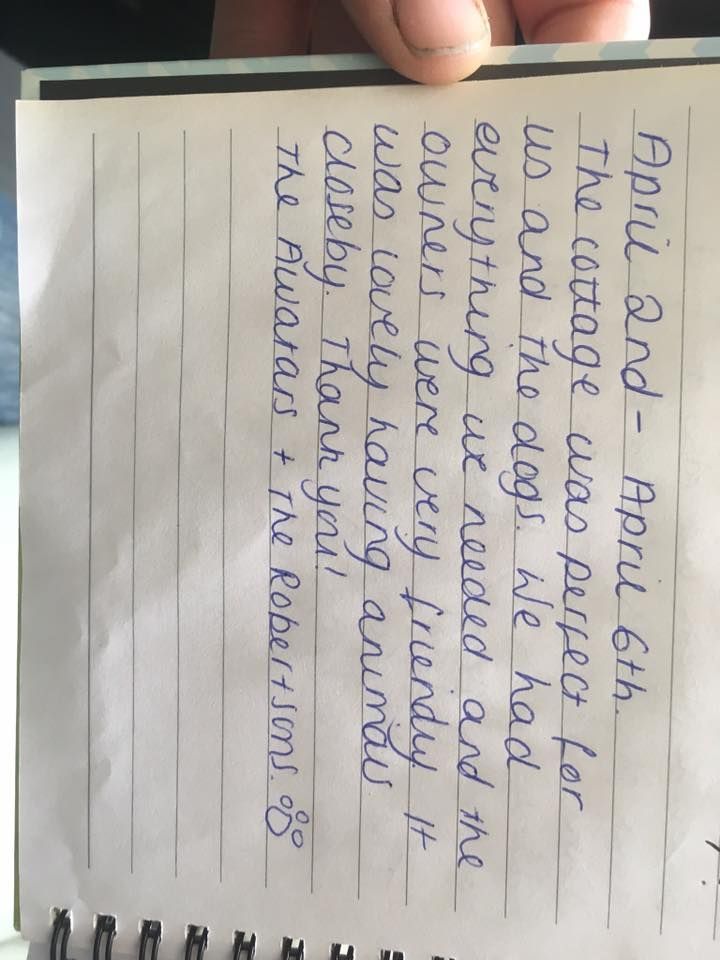 April 2nd - April 6th.
The cottage was perfect for
us and the dogs. We had
everything we needed and the
owners were very friendly. It
was lovely having animals
closeby. Thank you!
The Awatars + The Robertsons.